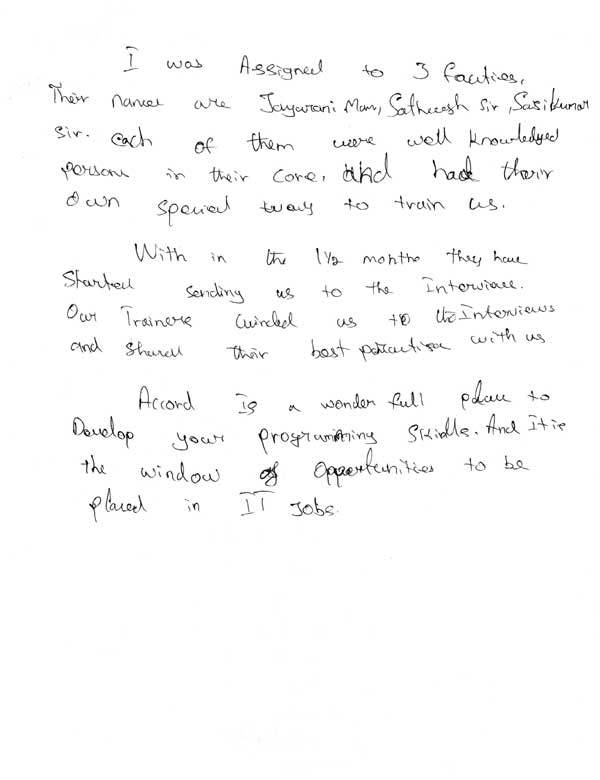 I was Assigned to 3 faculties,
Their names are Jayarani Mam, Satheesh Sir, Sasikumar
Sir. each of them were well knowledged
persons in their core. And had their
Own special way to train us.
With in the 1½ months they have
Started sending us to the Interviews.
Our Trainers Guided us to the Interviews
and Shared their best practices with us
Accord is a wonder full place to
Develop your programming Skills. And It is
the window of Opportunities to be
placed in IT Jobs.